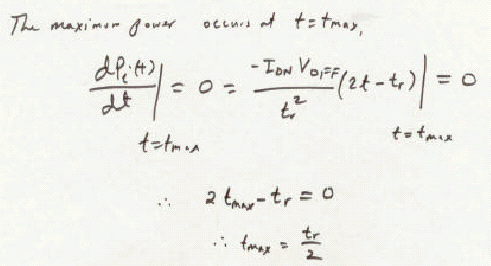 The maximum power occurs at t = tmax,
dPc(t)/dt | t=tmax = 0 = -ION VOFF/tr² (2t - tr) | t=tmax = 0
∴ 2 tmax - tr = 0
∴ tmax = tr/2